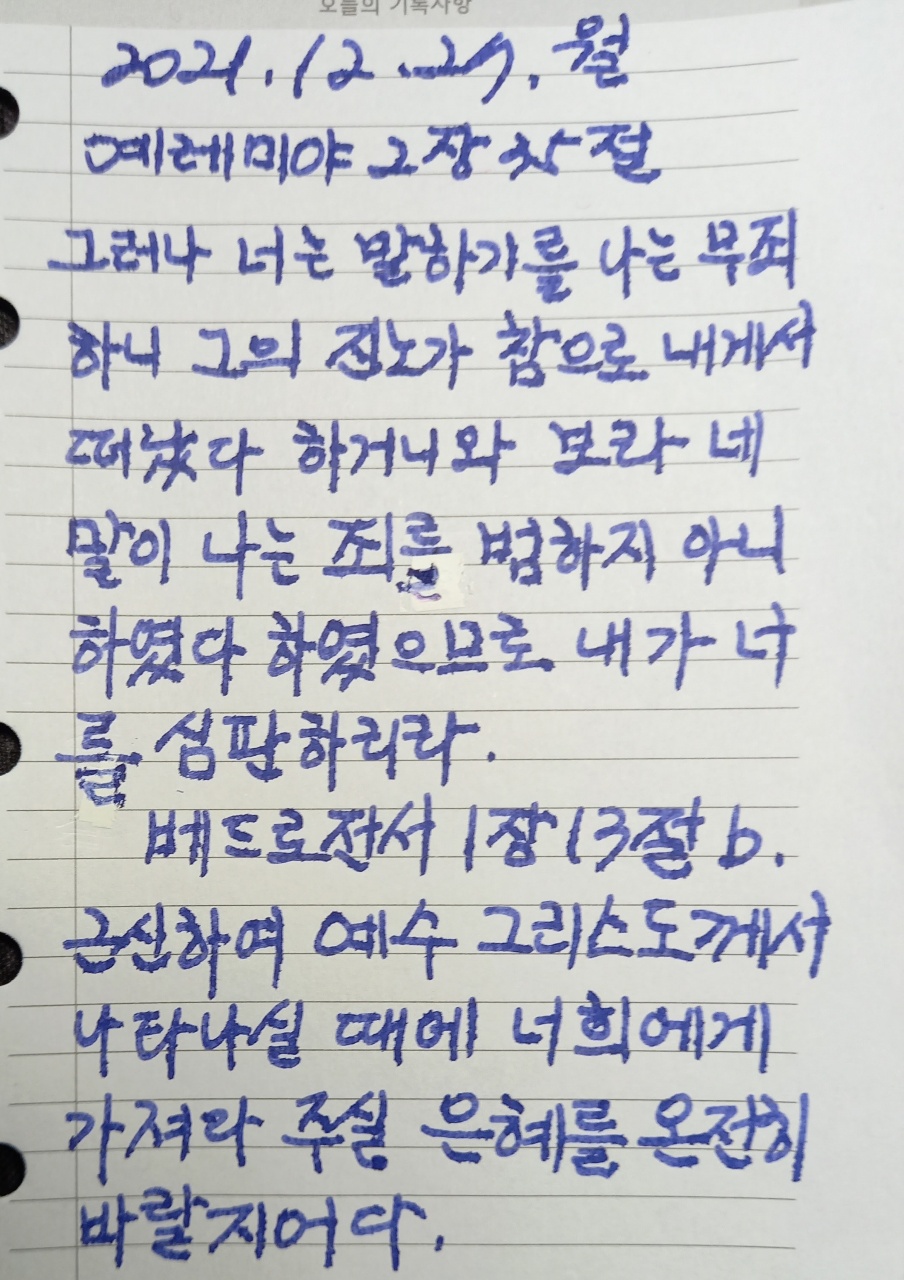 오늘의 기록사항
2021.12.27. 월
예레미야 2장 35절
그러나 너는 말하기를 나는 무죄
하니 그의 진노가 참으로 내게서
떠났다 하거니와 보라 네
말이 나는 죄를 범하지 아니
하였다 하였으므로 내가 너
를 심판하리라.
베드로전서 1장 13절 b.
근신하여 예수 그리스도께서
나타나실 때에 너희에게
가져다 주실 은혜를 온전히
바랄지어다.